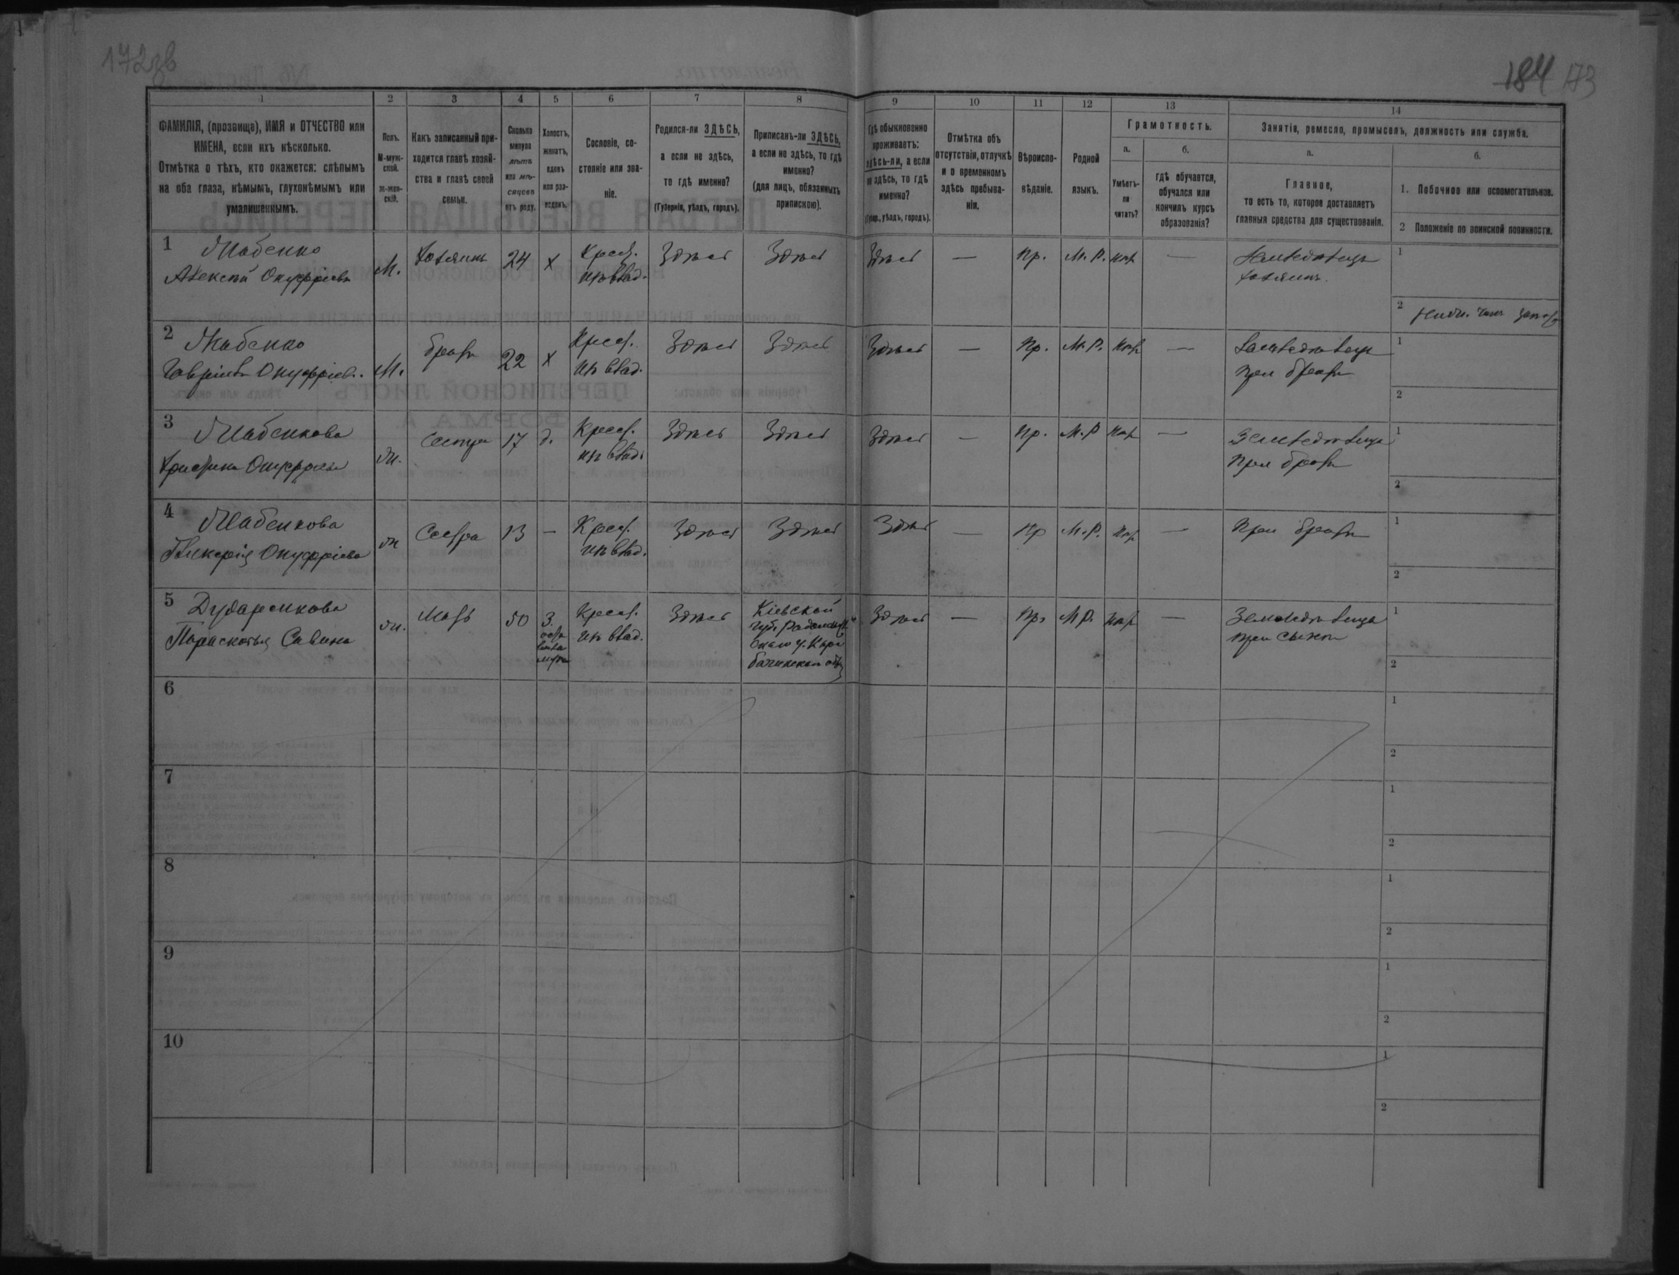 172зв
184 173
1 2 3 4 5 6 7 8 9 10 11 12 13 14
ФАМИЛІЯ, (прозвище), ИМЯ и ОТЧЕСТВО или
ИМЕНА, если ихъ нѣсколько.
Отмѣтка о тѣхъ, кто окажется: слѣпымъ
на оба глаза, нѣмымъ, глухонѣмымъ или
умалишеннымъ.
Полъ.
М-муж-
ской.
Ж-жен-
скій.
Какъ записанный при-
ходится главѣ хозяй-
ства и главѣ своей
семьи.
Сколько
минуло
лѣтъ
или мѣ-
сяцевъ
отъ роду.
Холостъ,
женатъ,
вдовъ
или раз-
веденъ.
Сословіе, со-
стояніе или зва-
ніе.
Родился-ли ЗДѢСЬ,
а если не здѣсь,
то гдѣ именно?
(Губернія, уѣздъ, городъ).
Приписанъ-ли ЗДѢСЬ,
а если не здѣсь, то гдѣ
именно?
(для лицъ, обязанныхъ
припискою).
Гдѣ обыкновенно
проживаетъ:
здѣсь-ли, а если
не здѣсь, то гдѣ
именно?
(Губ., уѣздъ, городъ).
Отмѣтка объ
отсутствіи, отлучкѣ
и о временномъ
здѣсь пребыва-
ніи.
Вѣроиспо-
вѣданіе.
Родной
языкъ.
Грамотность.
а.
Умѣетъ-
ли
читать?
б.
гдѣ обучается,
обучался или
кончилъ курсъ
образованія?
Занятія, ремесло, промыселъ, должность или служба.
а.
Главное,
то есть то, которое доставляетъ
главныя средства для существованія.
б.
1. Побочное или вспомогательное.
2 Положеніе по воинской повинности.
1 Шабенко
Алексѣй Онуфріевъ
М.
Хозяинъ
24
х
Крест.
изъ влад.
Здѣсь
Здѣсь
Здѣсь
—
Пр.
М.Р.
нѣт
—
Земледѣлецъ
хозяинъ.
1
2
2 Шабенко
Гавріилъ Онуфріев.
М.
братъ
22
х
Крест.
изъ влад.
Здѣсь
Здѣсь
Здѣсь
—
Пр.
М.Р.
нѣт
—
Земледѣлецъ
при братѣ
1
2
3 Шабенкова
Христина Онуфріева
ж.
Сестра
17
д.
Крест.
изъ влад.
Здѣсь
Здѣсь
Здѣсь
—
Пр.
М.Р
нѣт
—
Земледѣлица
при братѣ
1
2
4 Шабенкова
Гликерія Онуфріева
ж
Сестра
13
—
Крест.
изъ влад.
Здѣсь
Здѣсь
Здѣсь
—
Пр
М.Р.
нѣт
—
При братѣ
1
2
5 Дударенкова
Параскевія Савина
ж.
Мать
50
З.
Крест.
изъ влад.
Здѣсь
Кіевской
губ. Радомысль
скаго у.
Здѣсь
—
Пр.
М.Р.
нѣт
—
Земледѣлица
при сынѣ
1
2
6
1
2
7
1
2
8
1
2
9
1
2
10
1
2